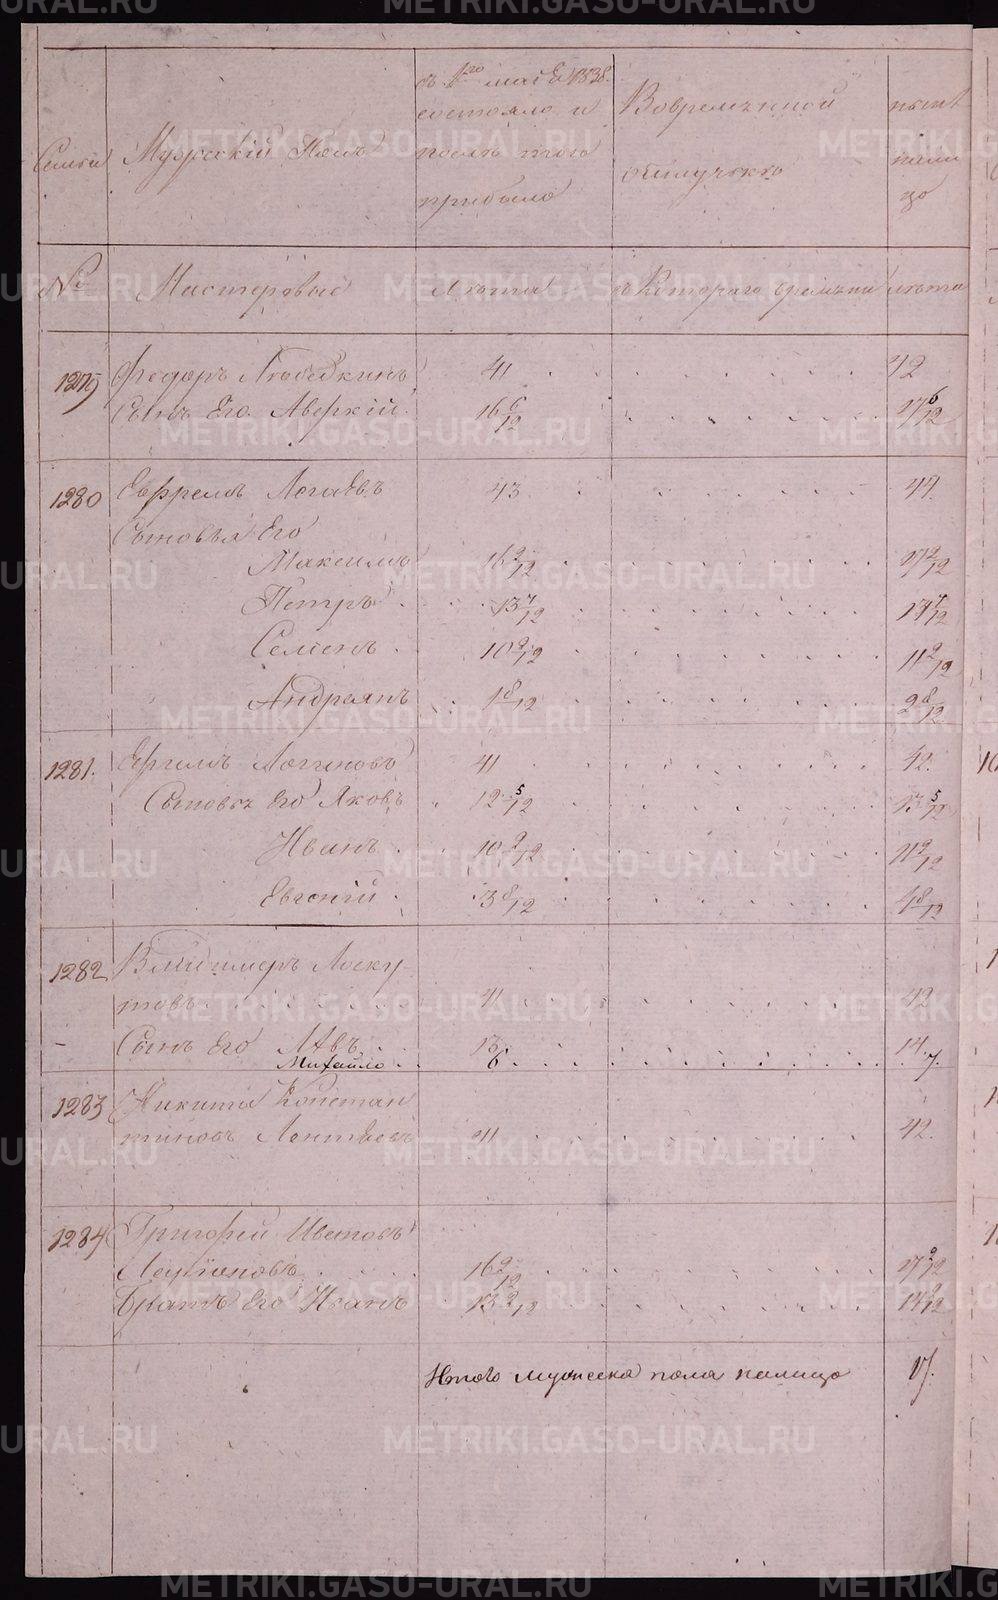 Семьи
Мужескій Полъ
съ 1го маія 1838.
состояло и
послѣ того
прибыло
Вовремѣнной
отлучькѣ
нынѣ
нали
цо
№
Мастеровые
Лѣта
съ Котораго времѣни
лѣта
1279 Федоръ Лебедкинъ 41 42
Сынъ Его Аверкій 16 6/12 17 6/12
1280 Ефремъ 43 44
Сыновья Его
Максимъ 16 2/12 17 2/12
Петръ 13 4/12 14 4/12
Семенъ 10 2/12 11 2/12
Андреянъ 1 8/12 2 8/12
1281. Ефимъ Логиновъ 41 42.
Сыновья Его Яковъ 12 5/12 13 5/12
Иванъ 10 2/12 11 2/12
Евгений 3 8/12 4 8/12
1282 Владимеръ Лоску
товъ 41 42
Сынъ Его Левъ 13 14
Михайло 6 7.
1283 Никита Констан
тиновъ Леонтьевъ 41 42.
1284 Григорей
Ларионовъ 16 2/12 17 2/12
Братъ Его Иванъ 13 2/12 14 2/12
Итого мужеска пола налицо 17.
METRIKI.GASO-URAL.RU